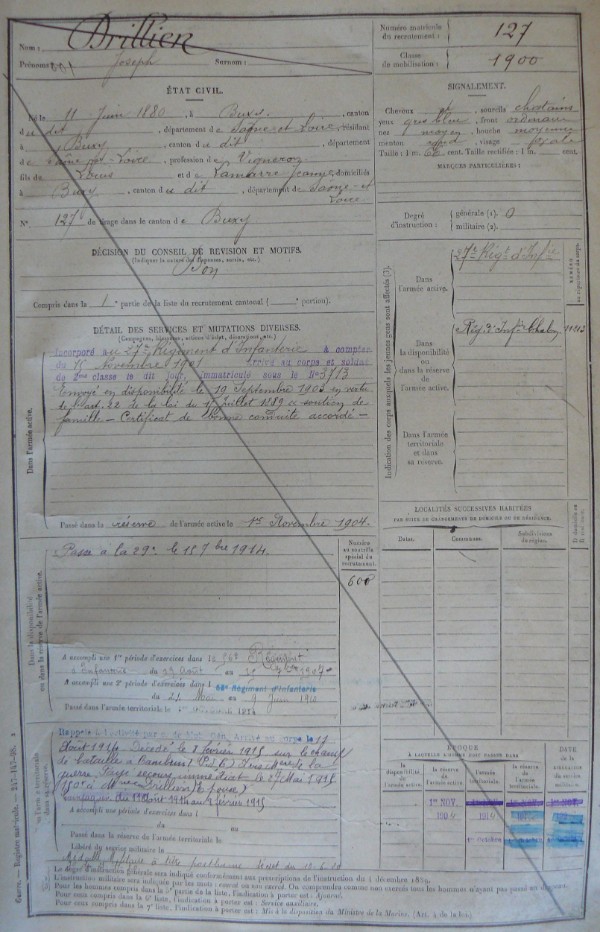 Nom : Drillien
Prénoms : Joseph Surnom :
Numéro matricule du recrutement : 127
Classe de mobilisation : 1900
ÉTAT CIVIL.
Né le 11 Juin 1880, à Buxy, canton
du dit, département de Saône-et-Loire, résidant
à Buxy, canton du dit, département
de Saône-et-Loire, profession de Vigneron
fils de Louis et de Lamarre Jeanne, domiciliés
à Buxy, canton du dit, département de Saône-et-
Loire
N° de tirage dans le canton de Buxy
SIGNALEMENT.
Cheveux, sourcils chatains
yeux gris bleu, front ordinaire
nez moyen, bouche moyenne
menton rond, visage ovale
Taille : 1 m. cent. Taille rectifiée : 1 m. cent.
MARQUES PARTICULIÈRES :
Degré d'instruction : générale (1). 0
militaire (2).
DÉCISION DU CONSEIL DE RÉVISION ET MOTIFS.
Bon
Compris dans la 1e partie de la liste du recrutement cantonal ( portion).
DÉTAIL DES SERVICES ET MUTATIONS DIVERSES.
(Campagnes, blessures, actions d'éclat, décorations, etc.)
Dans l'armée active.
Incorporé au 27e Régiment d'Infanterie à compter
du 15 novembre 1901 arrivé au corps et soldat
de 2ème classe le dit jour, immatriculé sous le N° 3713
Envoyé en disponibilité le 19 Septembre 1903 en vertu
de l'art. 22 de la loi du 15 juillet 1889 soutien de
famille — Certificat de bonne conduite accordé —
Passé dans la réserve de l'armée active le 1er Novembre 1904.
Indication des corps auxquels les jeunes gens sont affectés
Dans l'armée active. 27e Régt d'Infie
Dans la disponibilité ou dans la réserve de l'armée active.
Régt d'Infie Chalon
Dans l'armée territoriale et dans sa réserve.
LOCALITÉS SUCCESSIVES HABITÉES
PAR SUITE DE CHANGEMENTS DE DOMICILE OU DE RÉSIDENCE.
Dates. Communes. Subdivisions de région.
Dans la disponibilité ou dans la réserve de l'armée active.
Passé à la 29e le 15 7bre 1914.
Numéro au contrôle spécial du recrutement.
600
A accompli une 1re période d'exercices dans le 56e Régiment
d'Infanterie du 26 Août au
A accompli une 2e période d'exercices dans le 56e Régiment d'Infanterie
du 24 Mai au 9 Juin 1910
Passé dans l'armée territoriale le
Rappelé à l'activité par Arrivé au corps le 17
Août 1914. Décédé le 8 Février 1915 sur le champ
de bataille à Cambrin (P.d.C.)
guerre. Payé secours immédiat le 27 Mai 1915
150f à Mme Drillien (Epouse)
Campagne du 17 Août 1914 au 8 Février 1915
A accompli une période d'exercices dans l
du au
Passé dans la réserve de l'armée territoriale le
Libéré du service militaire le
Médaille Militaire à titre posthume
ÉPOQUE
À LAQUELLE L'HOMME DOIT PASSER DANS
la disponibilité de l'armée active. la réserve de l'armée active. l'armée territoriale. la réserve de l'armée territoriale.
DATE DE LA LIBÉRATION du service militaire.
1er NOV.
Le degré d'instruction générale sera indiqué conformément aux prescriptions de l'instruction du 4 décembre 1889.
L'instruction militaire sera indiquée par les mots : exercé ou non exercé. On comprendra comme non exercés tous les hommes n'ayant pas passé un disponible.
Pour les hommes compris dans la 5e partie de la liste, l'indication à porter est : Ajourné.
Pour ceux compris dans la 6e partie, l'indication à porter est : Service auxiliaire.
Pour ceux compris dans la 7e liste, l'indication à porter est : Mis à la disposition du Ministre de la Marine. (Art. 4 de la loi).